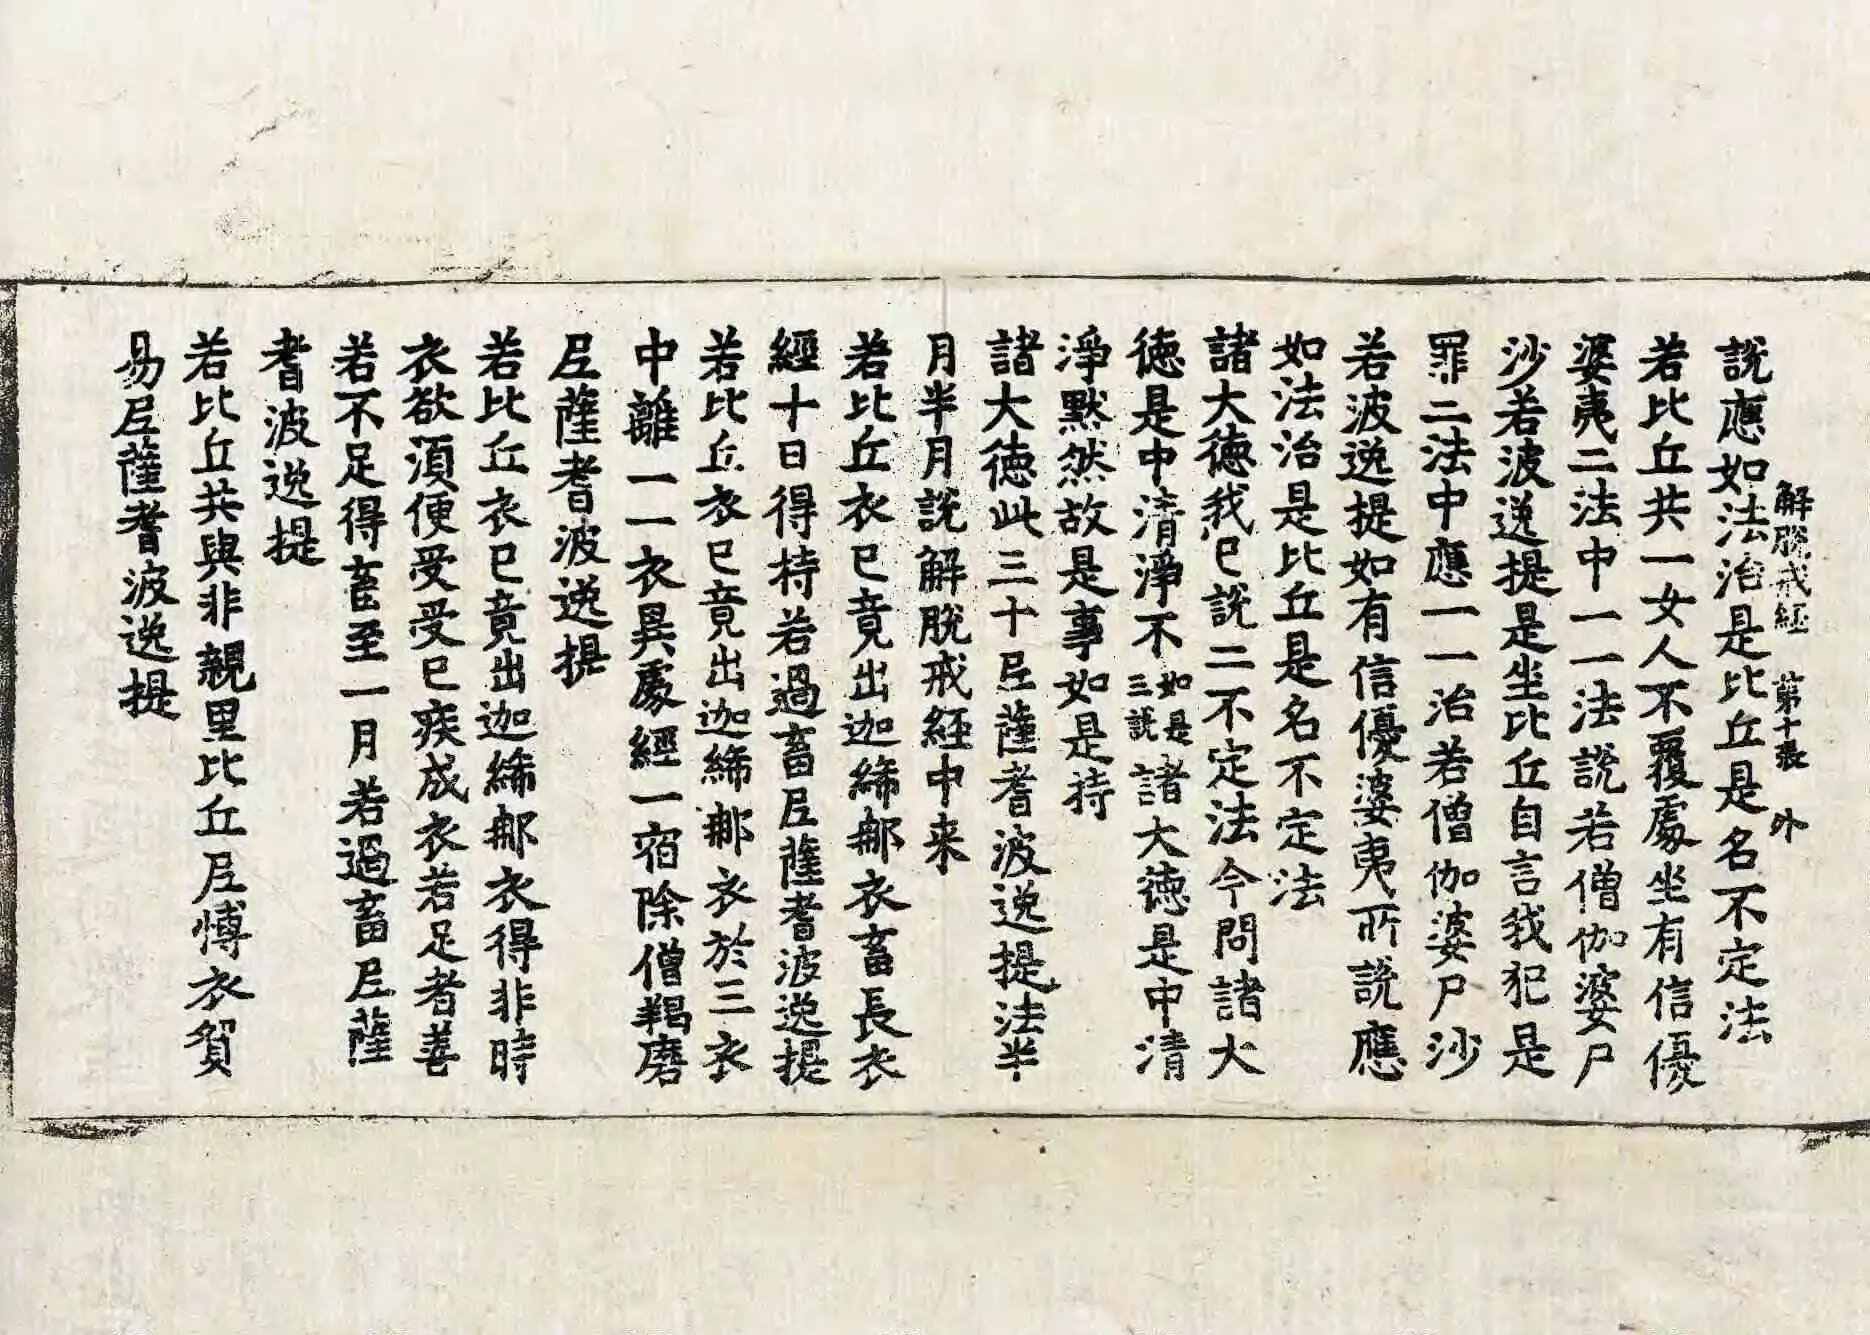 解脫戒経 第十張 外
說應如法治是比丘是名不定法
若比丘共一女人不覆處坐有信優
婆夷二法中一一法說若僧伽婆尸
沙若波逸提是坐比丘自言我犯是
罪二法中應一一治若僧伽婆尸沙
若波逸提如有信優婆夷所說應
如法治是比丘是名不定法
諸大德我已說二不定法今問諸大
德是中清淨不如是三說諸大德是中清
淨默然故是事如是持
諸大德此三十尼薩耆波逸提法半
月半月說解脫戒経中来
若比丘衣已竟出迦絺那衣畜長衣
經十日得持若過畜尼薩耆波逸提
若比丘衣已竟出迦絺那衣於三衣
中離一一衣異處經一宿除僧羯磨
尼薩耆波逸提
若比丘衣已竟出迦絺那衣得非時
衣欲須便受受已疾成衣若足者善
若不足得畜至一月若過畜尼薩
耆波逸提
若比丘共與非親里比丘尼愽衣貿
易尼薩耆波逸提